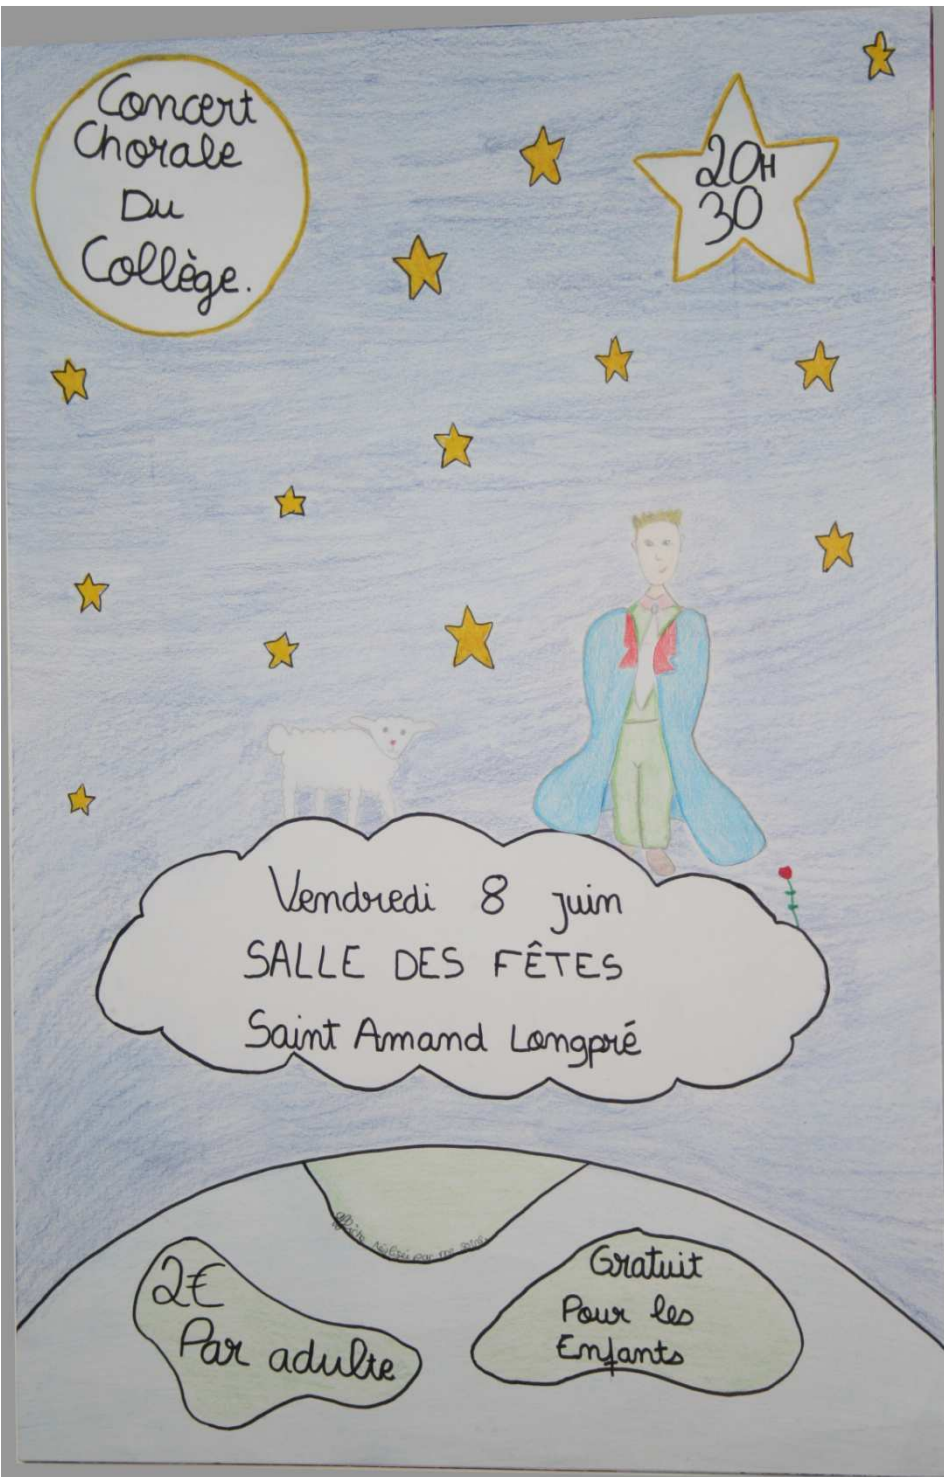 Concert
Chorale
Du
Collège.
20H
30
Vendredi 8 juin
SALLE DES FÊTES
Saint Amand Longpré
Affiche réalisée par
2€
Par adulte
Gratuit
Pour les
Enfants